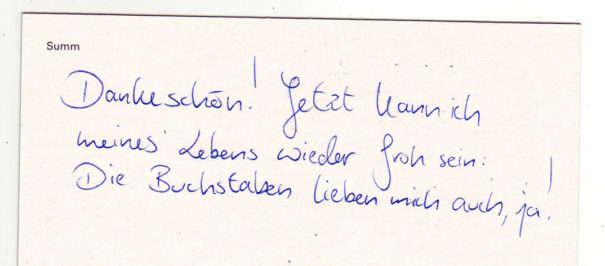 Summ
Dankeschön! Jetzt kann ich
meines Lebens wieder froh sein:
Die Buchstaben lieben mich auch, ja!